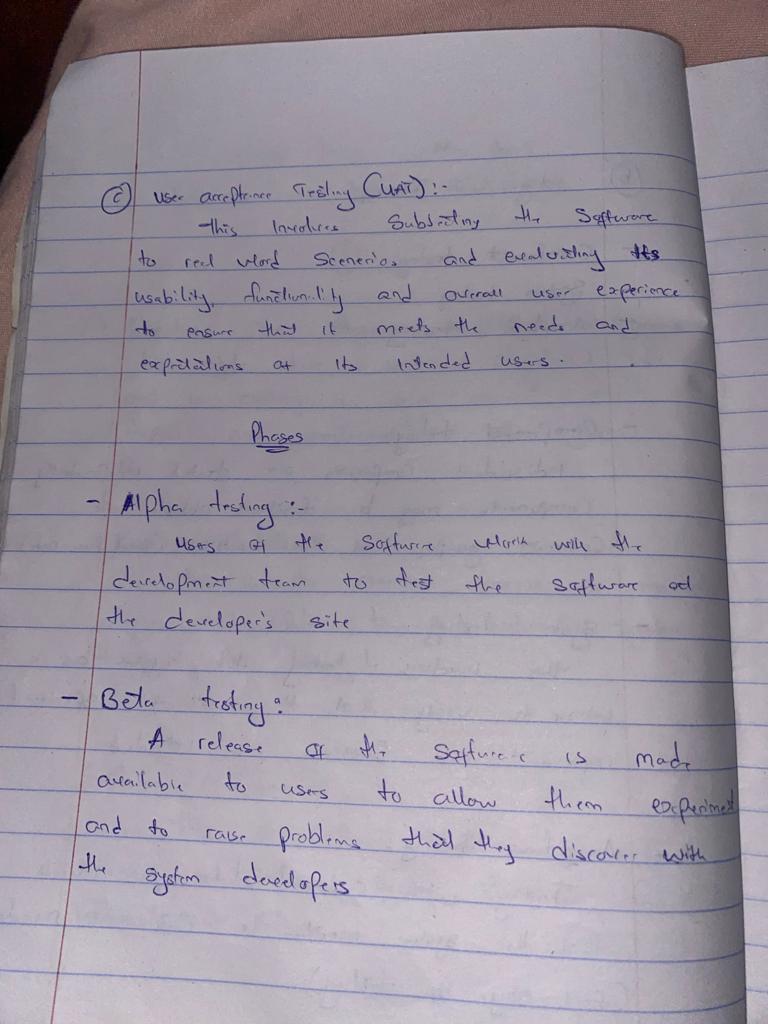 (c) User acceptance Testing (UAT):-
This Involves Subjecting the Software
to real word Scenerios, and evaluating its
usability, functionality and overall user experience
to ensure that it meets the needs and
expectations of its Intended users.
Phases
- Alpha testing :-
Users of the Software Work with the
development team to test the software at
the developer's site
- Beta testing:
A release of the Software is made
available to users to allow them experiment
and to raise problems that they discover with
the system developers